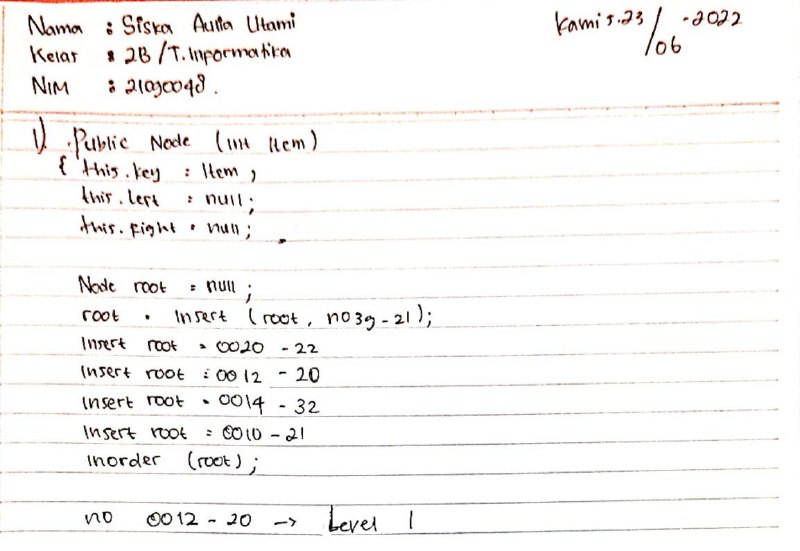 Nama : Siska Aulia Utami
Kamis, 23/06-2022
Kelas : 2B/T.Informatika
NIM : 21090048.
1) Public Node (int Item)
{ this.key = Item ,
this.left = null;
this.right = null;
Node root = null ;
root = Insert (root, no39-21);
Insert root = 0020 - 22
Insert root = 0012 - 20
Insert root = 0014 - 32
Insert root = 0010 - 21
inorder (root) ;
no 0012 - 20 -> Level 1